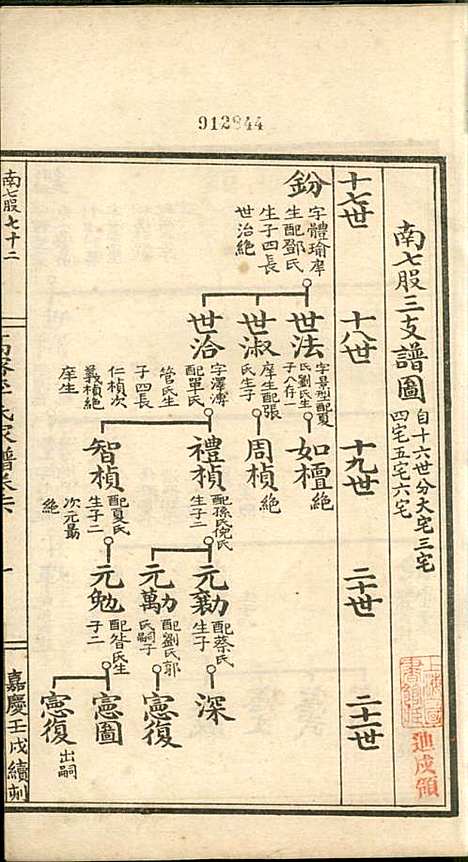 912844
南七股三支譜圖
自十六世分大宅三宅
四宅五宅六宅
十七世
十八世
十九世
二十世
二十一世
鈖
字體瑜庠
生配鄧氏
生子四長
世治絶
世法
字景型配夏
氏劉氏生
子八存一
世淑
庠生配張
氏生子
世洽
字澤溥
配單氏
管氏生
子四長
仁楨次
義楨絶
庠生
如檀
絶
周楨
絶
禮楨
配孫氏倪氏
生子二
智楨
配夏氏
生子二
次元勗
絶
元勷
配蔡氏
生子
元勱
配劉氏郭
氏嗣子
元勉
配昝氏生
子二
深
憲復
憲圖
憲復
出嗣
南七股七十二
李氏家譜卷六
嘉慶壬戌續刻